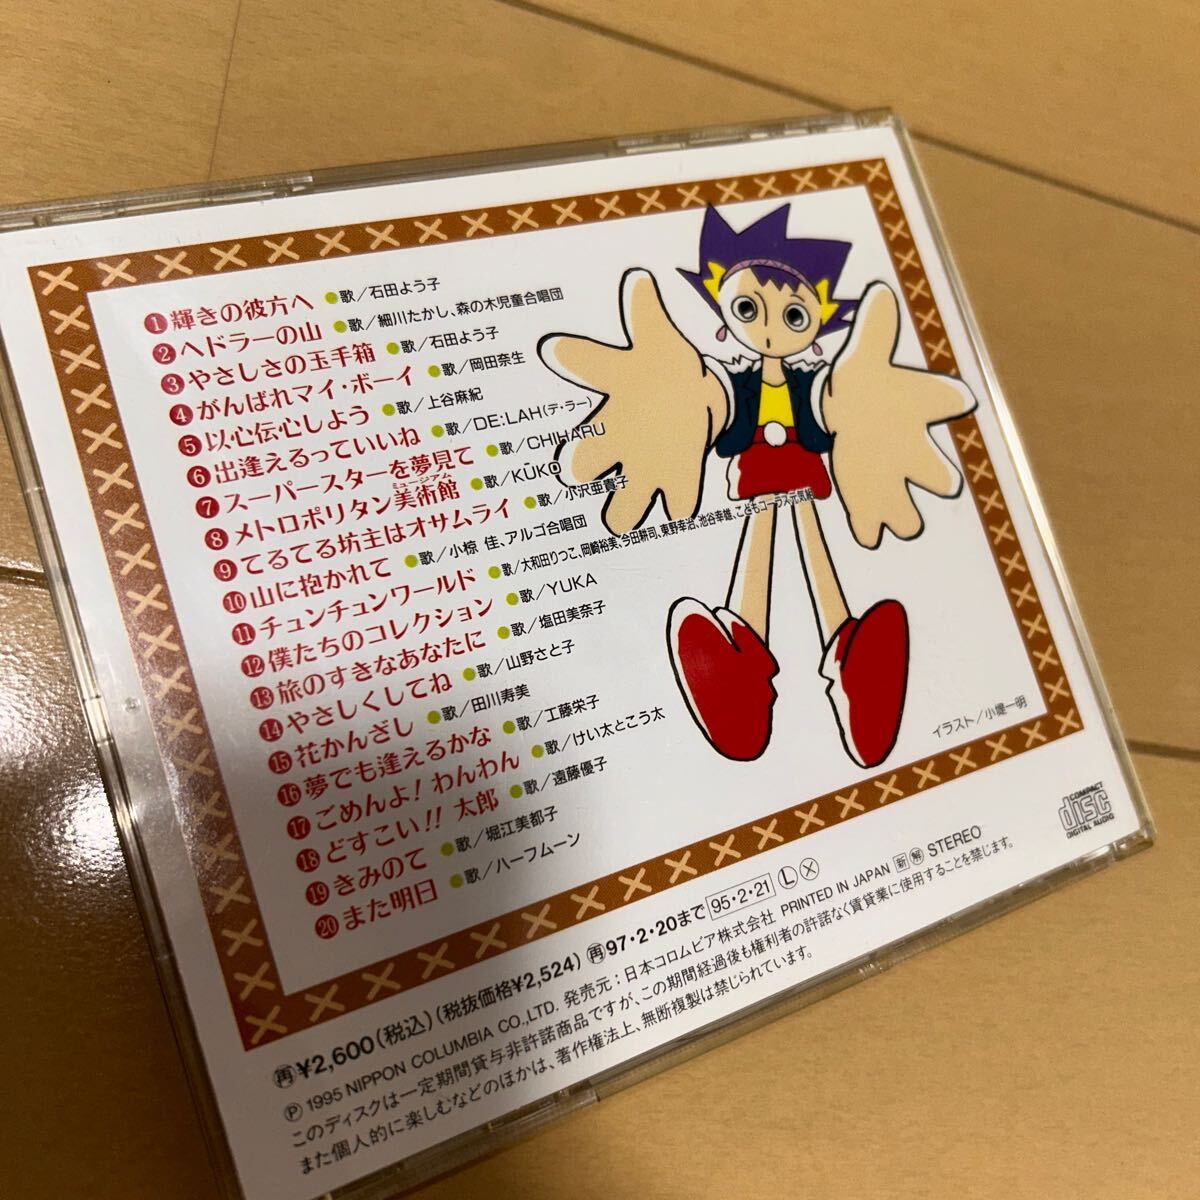 ❶輝きの彼方へ ●歌/石田よう子
❷ヘドラーの山 ●歌/細川たかし、森の木児童合唱団
❸やさしさの玉手箱 ●歌/石田よう子
❹がんばれマイ・ボーイ ●歌/岡田奈生
❺以心伝心しよう ●歌/上谷麻紀
❻出逢えるっていいね ●歌/DE:LAH(デ・ラー)
❼スーパースターを夢見て ●歌/CHIHARU
ミュージアム
❽メトロポリタン美術館 ●歌/KŪKO
❾てるてる坊主はオサムライ ●歌/小沢亜貴子
❿山に抱かれて ●歌/小椋 佳、アルゴ合唱団
⓫チュンチュンワールド ●歌/大和田りつこ、岡崎裕美、今田耕司、東野幸治、池谷幸雄、こどもコーラス元気組
⓬僕たちのコレクション ●歌/YUKA
⓭旅のすきなあなたに ●歌/塩田美奈子
⓮やさしくしてね ●歌/山野さと子
⓯花かんざし ●歌/田川寿美
⓰夢でも逢えるかな ●歌/工藤栄子
⓱ごめんよ!わんわん ●歌/けい太とこう太
⓲どすこい!! 太郎 ●歌/遠藤優子
⓳きみのて ●歌/堀江美都子
⓴また明日 ●歌/ハーフムーン
イラスト/小堤一明
COMPACT
disc
DIGITAL AUDIO
㊢¥2,600(税込)(税抜価格¥2,524) 再97・2・20まで 95・2・21 Ⓛ Ⓧ
Ⓟ 1995 NIPPON COLUMBIA CO.,LTD. 発売元:日本コロムビア株式会社 PRINTED IN JAPAN 新 解 STEREO
このディスクは一定期間貸与非許諾商品ですが、この期間経過後も権利者の許諾なく賃貸業に使用することを禁じます。
また個人的に楽しむなどのほかは、著作権法上、無断複製は禁じられています。